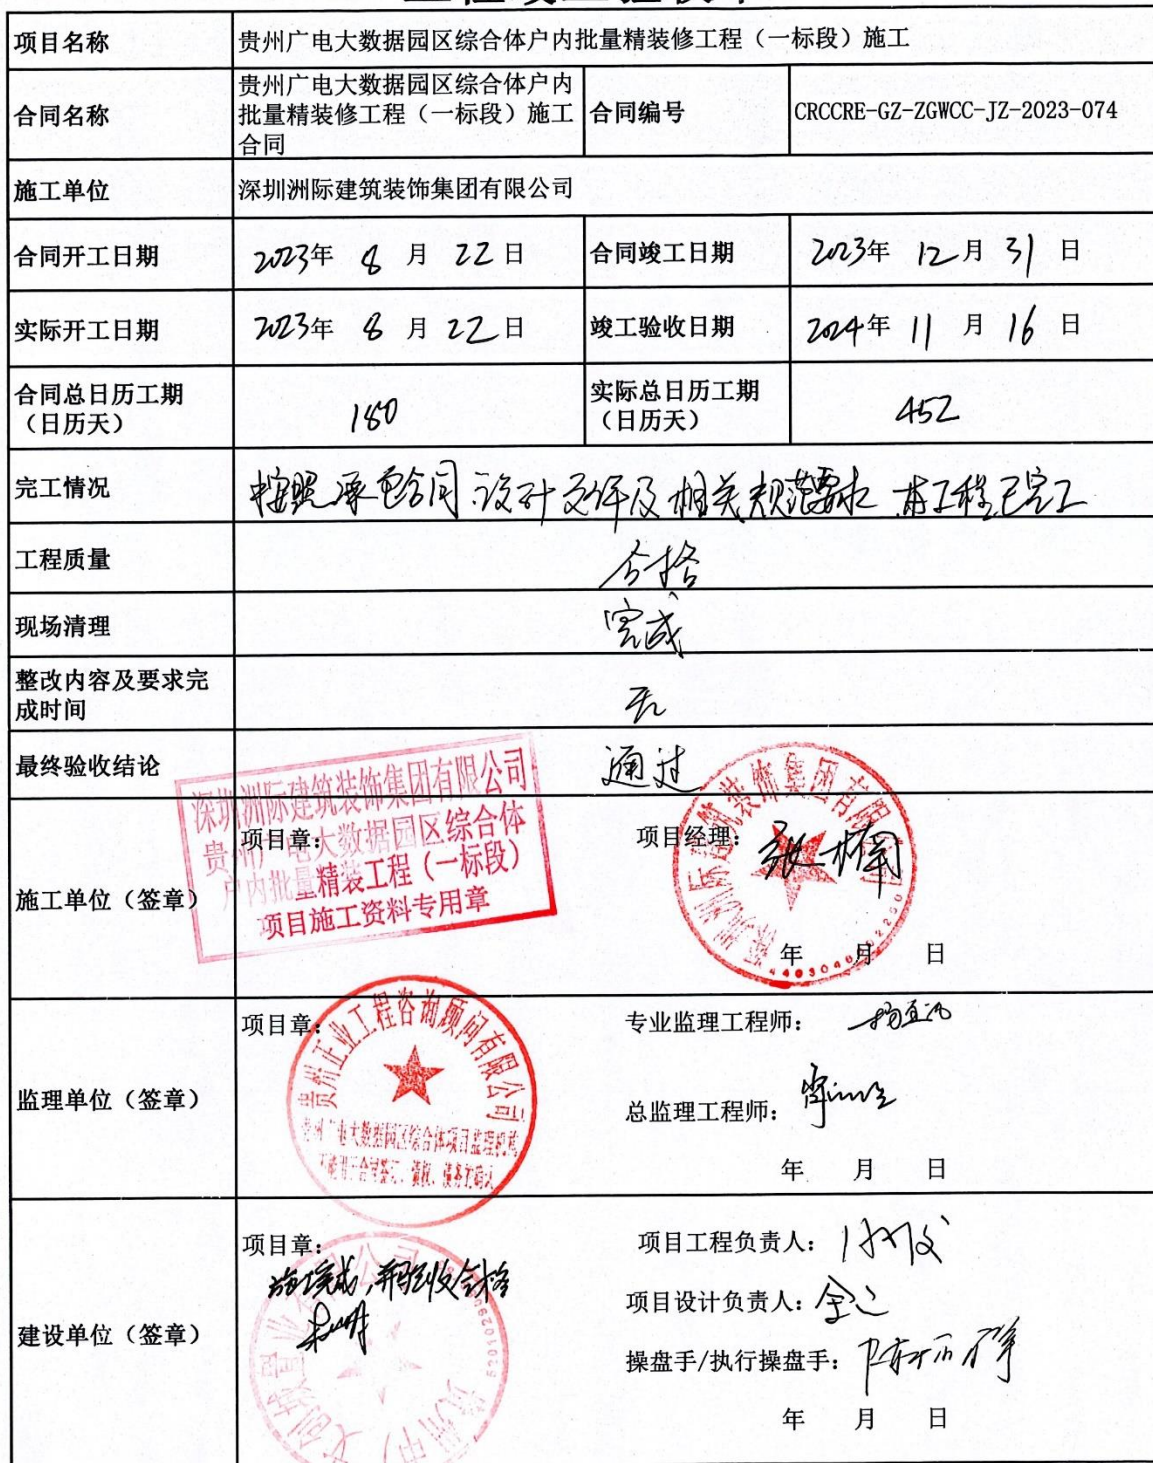 项目名称 贵州广电大数据园区综合体户内批量精装修工程（一标段）施工
合同名称 贵州广电大数据园区综合体户内
批量精装修工程（一标段）施工
合同
合同编号 CRCCRE-GZ-ZGWCC-JZ-2023-074
施工单位 深圳洲际建筑装饰集团有限公司
合同开工日期 2023年 8 月 22 日 合同竣工日期 2023年 12 月 31 日
实际开工日期 2023年 8 月 22 日 竣工验收日期 2024年 11 月 16 日
合同总日历工期
（日历天）
180
实际总日历工期
（日历天）
452
完工情况 按照承包合同 设计文件及相关规范要求 本工程已完工
工程质量 合格
现场清理 完成
整改内容及要求完
成时间
无
最终验收结论 通过
施工单位（签章）
项目章：
深圳洲际建筑装饰集团有限公司
贵州广电大数据园区综合体
户内批量精装工程（一标段）
项目施工资料专用章
项目经理：
深圳洲际建筑装饰集团有限公司
年 月 日
监理单位（签章）
项目章：
贵州正业工程咨询顾问有限公司
贵州广电大数据园区综合体项目监理机构
专业监理工程师：
总监理工程师：
年 月 日
建设单位（签章）
项目章：
施工完成，并验收合格
项目工程负责人：
项目设计负责人：
操盘手/执行操盘手：
年 月 日